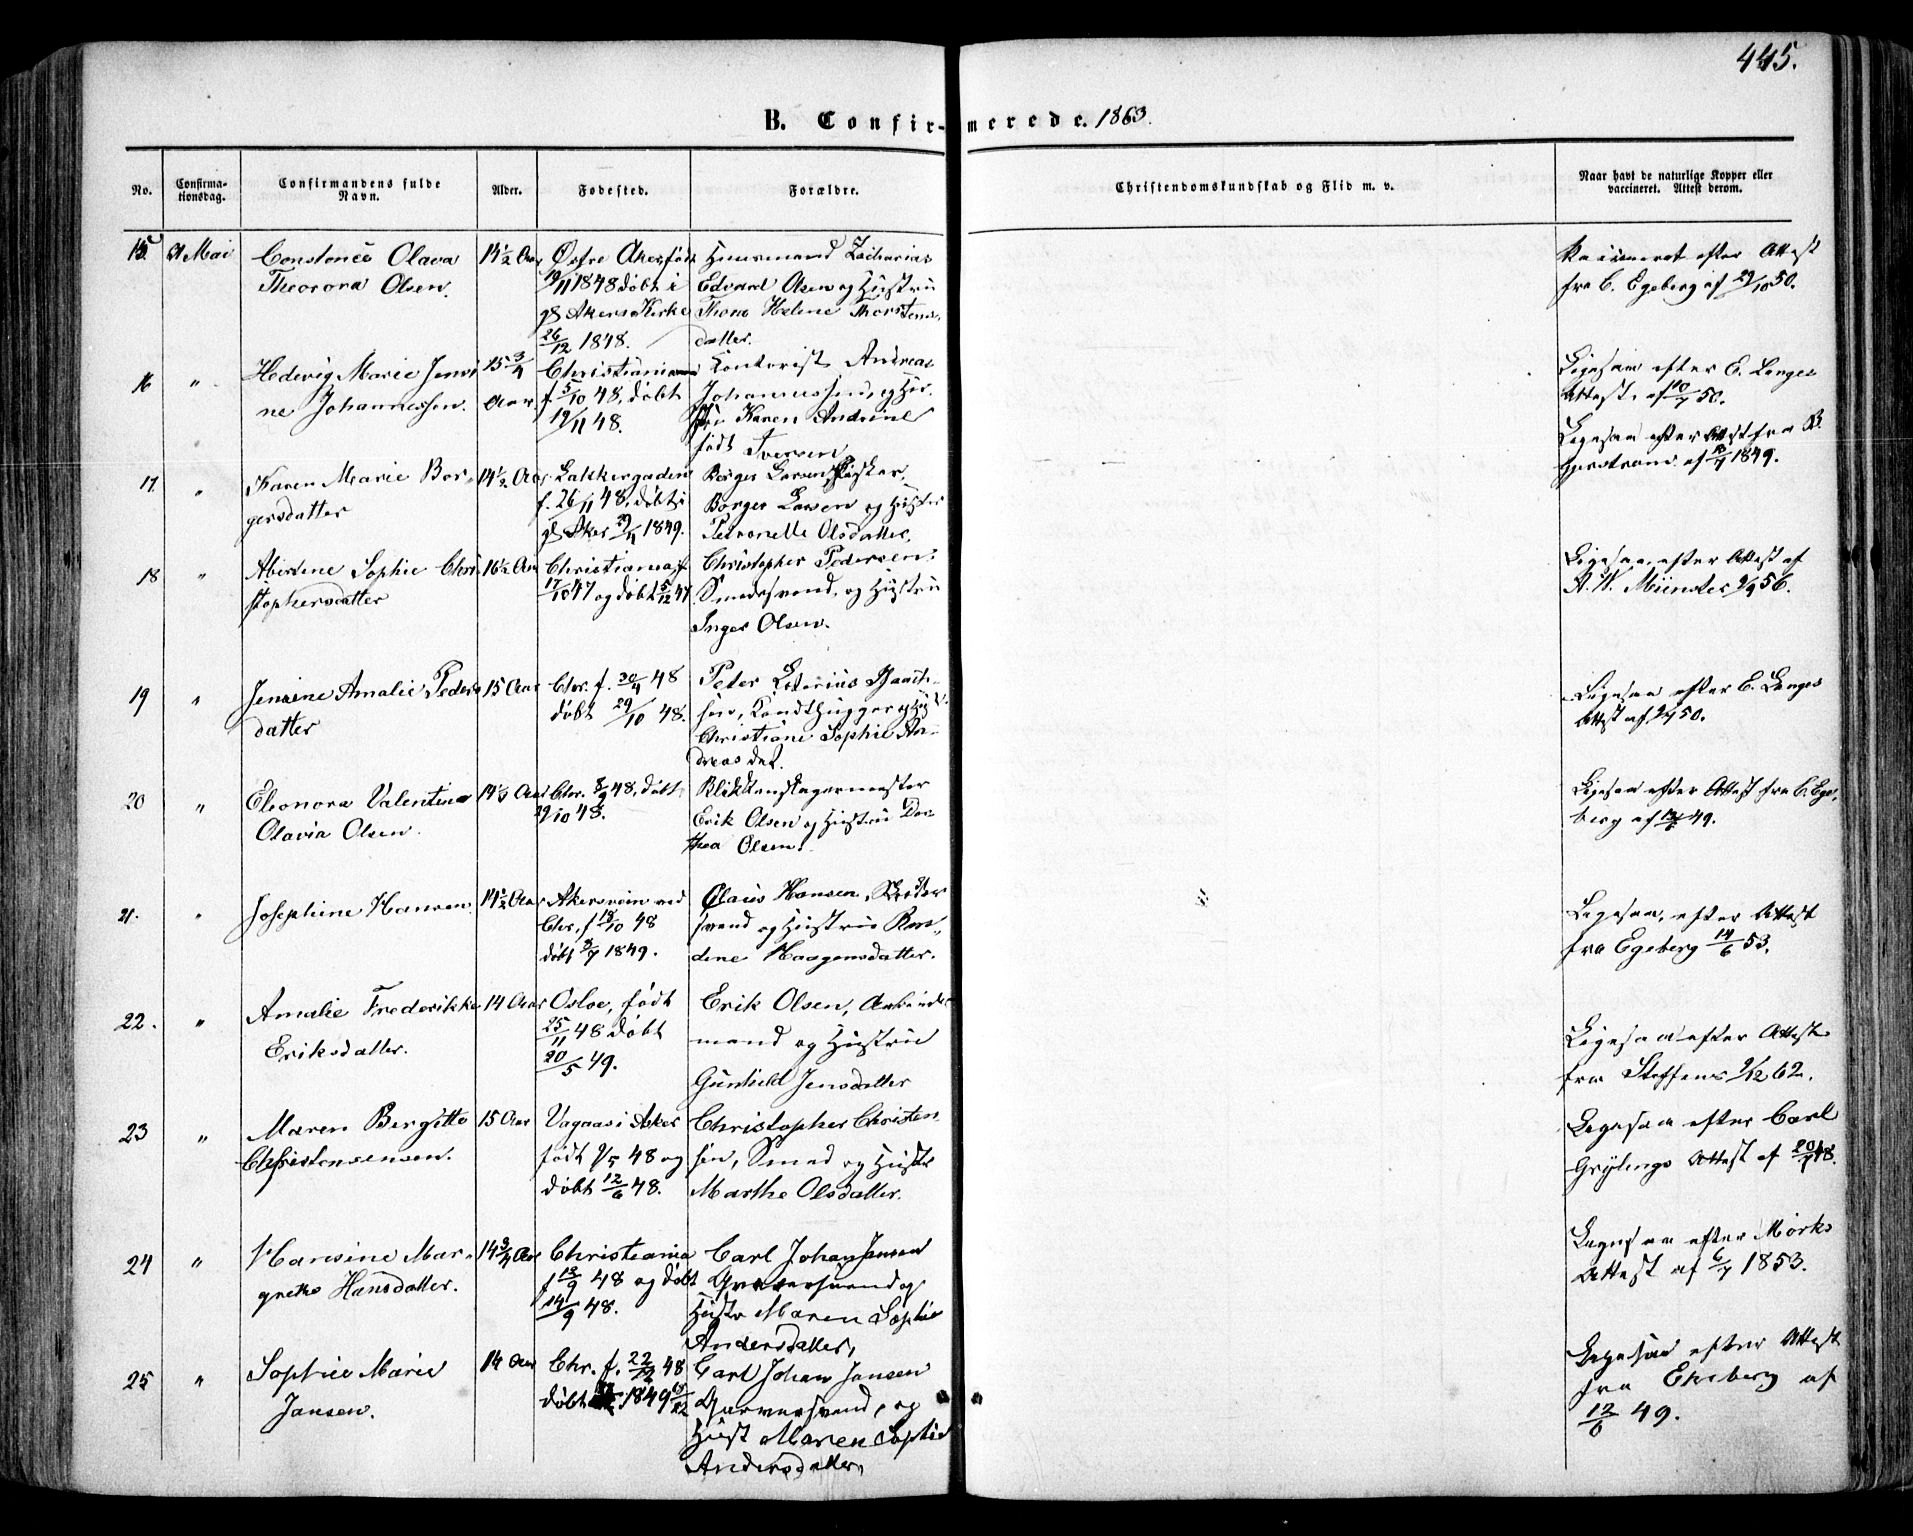 445.
B. Confir- merede. 1863.
No.
Confirma-
tionsdag.
Confirmandens fulde
Navn.
Alder.
Fødested.
Forældre.
Christendomskundskab og Flid m. v.
Naar havt de naturlige Kopper eller
vaccineret. Attest derom.
15. Mai
Constance Olava
Theodora Olsen.
14 1/2 Aar
Østre Aker, født
19/11 1848 døbt i
gl Akers Kirke
26/12 1848.
Huusmand Zacharias
Edvard Olsen og Hustru
Thone Helene Thorstens-
datter.
Vaccineret efter Attest
fra C. Egeberg af 29/10 50.
16 "
Hedevig Marie Jensi
ne Johannessen.
15 3/4
Aar.
Christiania
f. 5/10 48, døbt
19/11 48.
Contorist Andreas
Johannessen, og Hu-
stru Karen Andrine
født Iversen
Ligesaa efter E. Langes
Attest af 10/7 50.
17. "
Karen Marie Bør-
gersdatter
14 1/2 Aar
Lakkergaden
f. 26/11 48, døbt i
gl Aker 29/4 1849.
Børger Larsen, Fisker,
Børger Larsen og Hustru
Petronelle Olsdatter.
Ligesaa efter Attest fra B.
Gjerstrøm af 1849.
18 "
Abertine Sophie Chri-
stophersdatter
16 1/2 Aar
Christiania, f.
17/10 47 og døbt 5/12 47
Christopher Pedersen,
Smedsvend, og Hustru
Inger Olsen.
Ligesaa, efter Attest af
A. W. Münster 9/9 56.
19 "
Jensine Amalie Peders
datter
15 Aar
Chr. f. 20/4 48
døbt 29/10 48.
Peter
sen, og
Christiane Sophie An-
dreasdat.
Ligesaa efter E. Langes
Attest af 50.
20 "
Eleonora Valentine
Olavia Olsen.
14 Aar
Chr. 8/9 48, døbt
29/10 48.
Blikkenslagermester
Erik Olsen og Hustru Do-
thea Olsen.
Ligesaa efter Attest fra C. Ege-
berg af 49.
21. "
Josephine Hansen
14 1/2 Aar
Akersveien ved
Chr. f 18/10 48
døbt 9/7 1849.
Olaus Hansen,
svend og Hustru
dine Haagensdatter.
Ligesaa, efter Attest
fra Egeberg 14/6 53.
22. "
Amalie Frederikke
Eriksdatter.
14 Aar
Osloe, født
25/11 48 døbt
20/5 49.
Erik Olsen, Arbeids-
mand og Hustru
Gunhild Jensdatter
Ligesaa efter Attest
fra Steffens 9/12 62.
23 "
Maren Bergitte
Christensensen.
15 Aar
i Aker
født 9/5 48 og
døbt 12/6 48.
Christopher Christen-
sen, Smed og Hustr
Marthe Olsdatter.
Ligesaa efter Carl
Grylings Attest af 48.
24 "
Hansine Mar-
grethe Hansdatter.
14 3/4 Aar
Christiania
f 13/9 48 og døbt
14/9 48.
Carl Johan Jansen
Garversvend og
Hustr Maren Sophie
Andersdatter,
Ligesaa efter Mørks
Attest af 6/7 1853.
25 "
Sophie Marie
Jansen.
14 Aar
Chr. f. 22/12 48
døbt 1849
Carl Johan Jansen
Garversvend, og
Hust Maren Sophie
Andersdatter,
Ligesaa efter Attest
fra Ekeberg af
12/6 49.